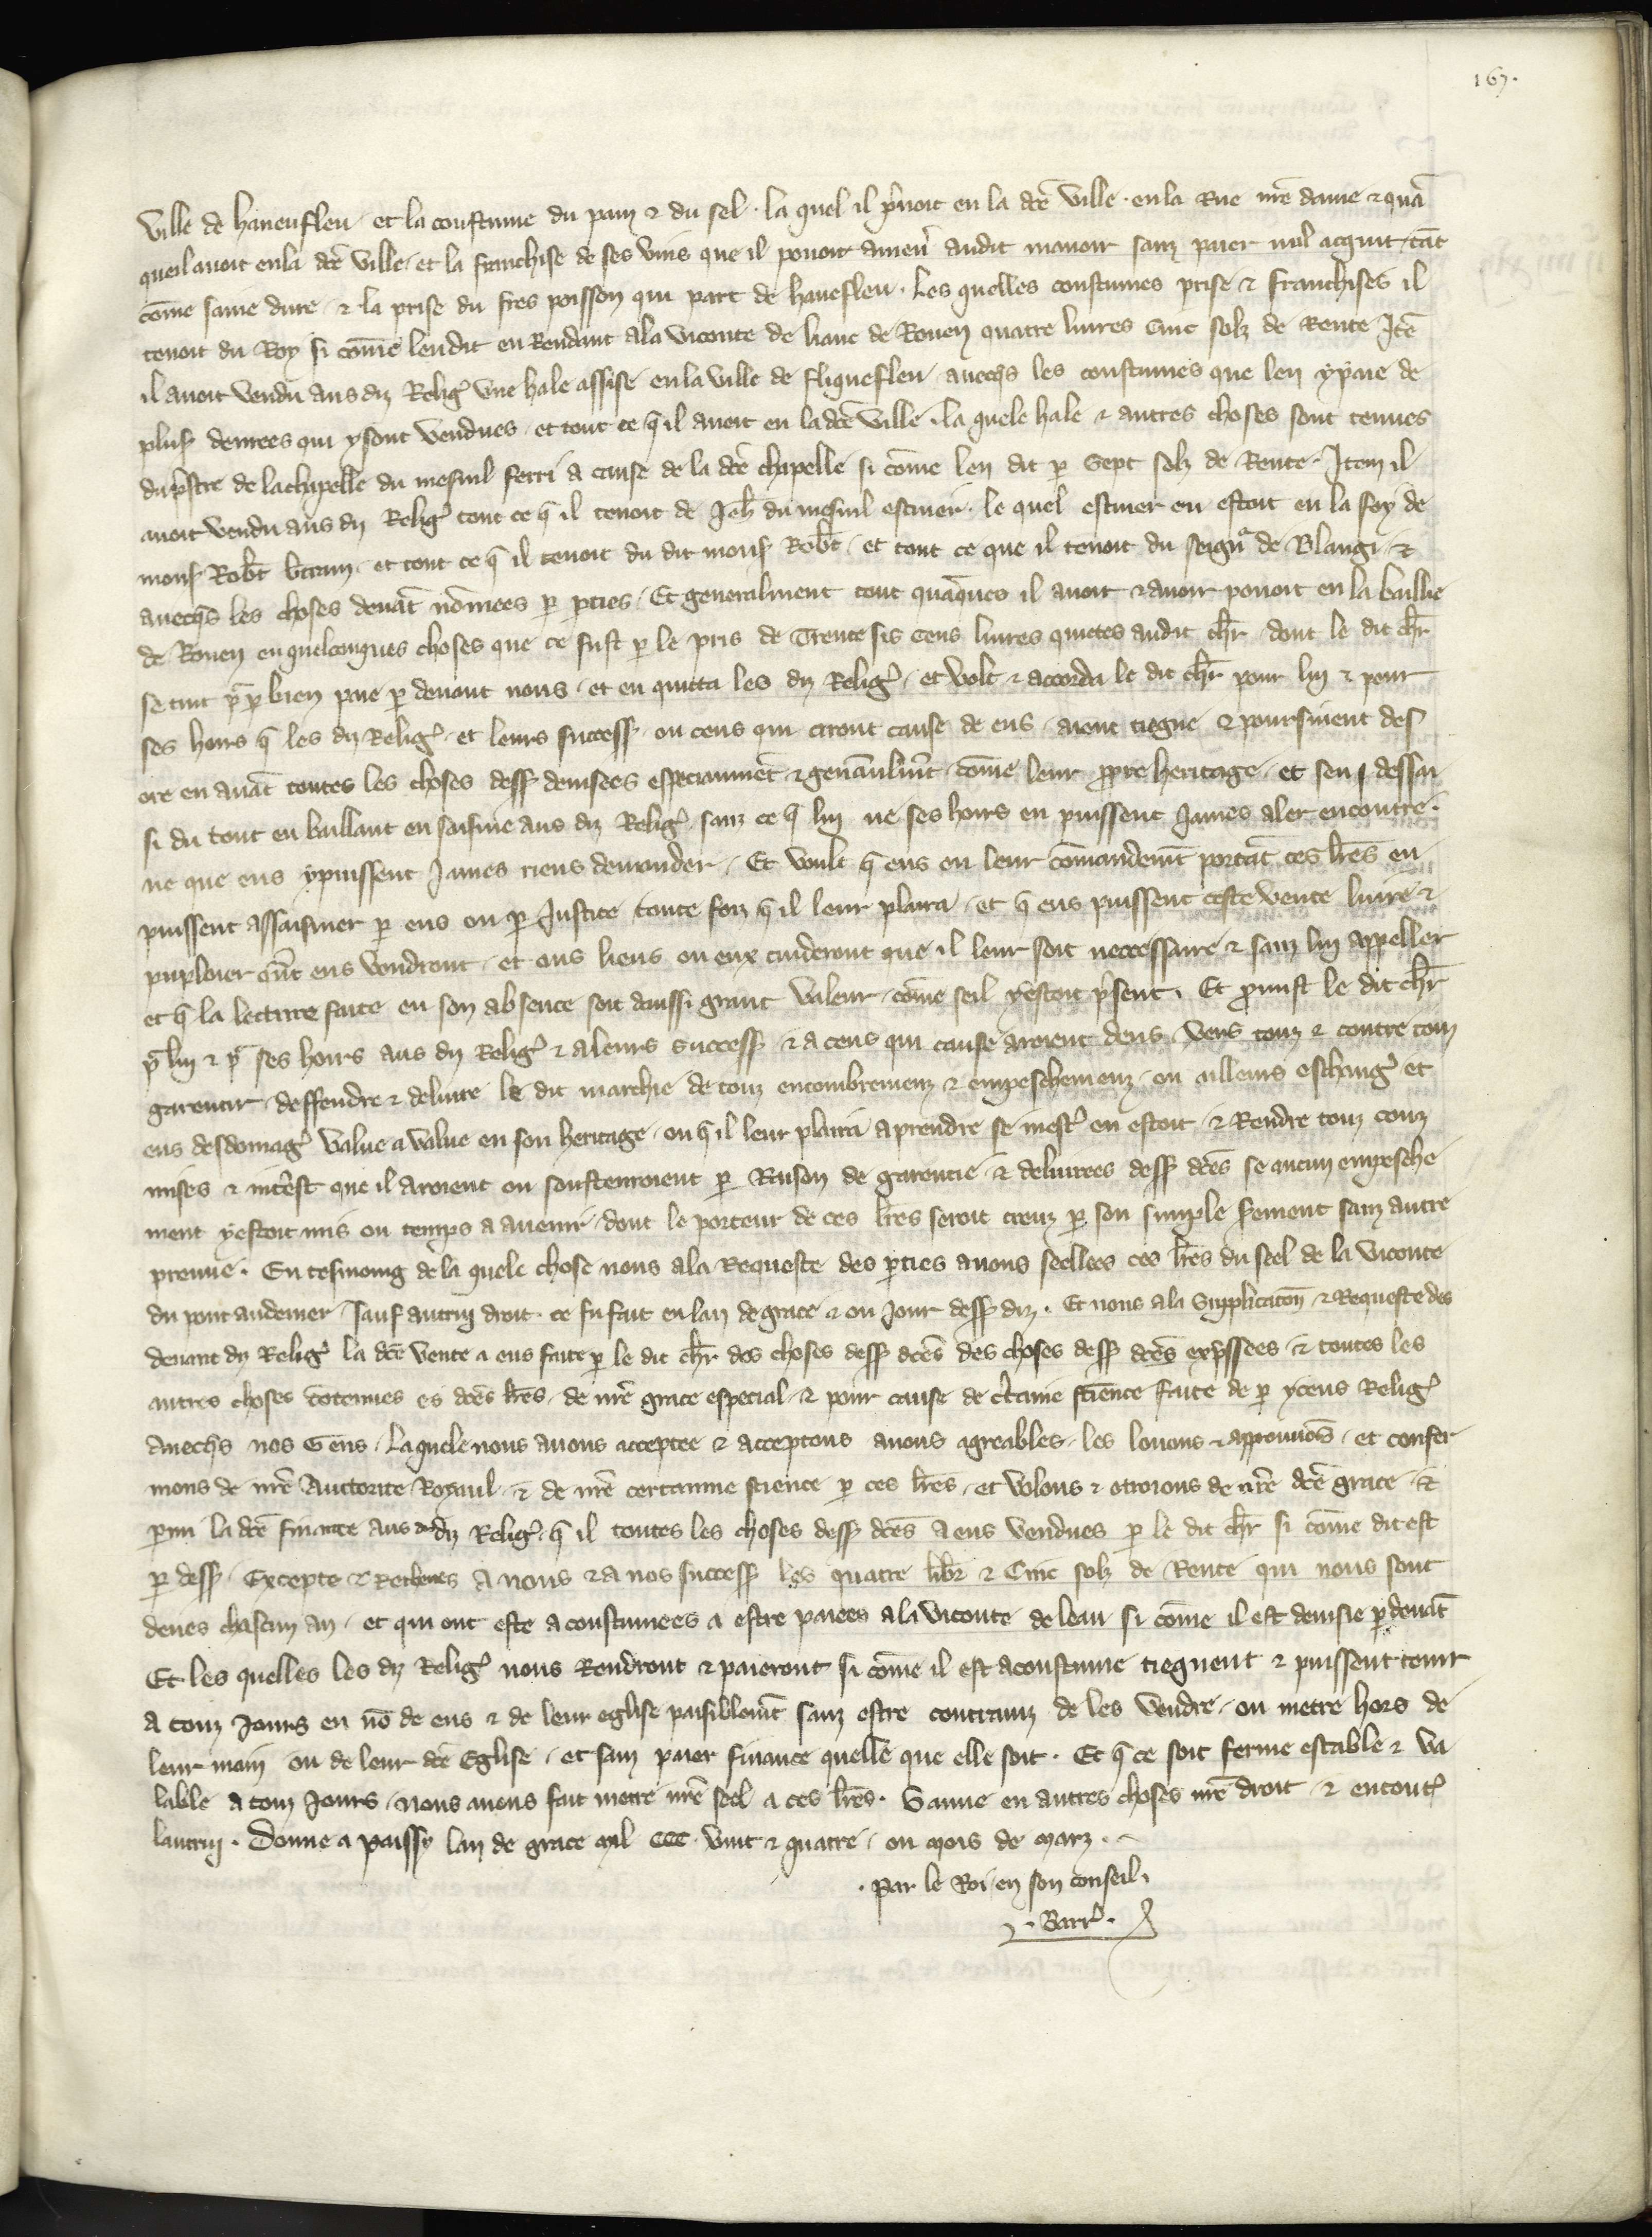 167.
ville de haneufleu et la coustume du pain & du sel. la quel il p̃noit en la dc̃e ville. en la Rue nr̃e dame & quã
queil auoit en la dc̃e ville, et la franchise de ses vins que il pouoit amen̾ audit manoir sanz paier nul acquit, tãt
cõme saine dure, & la prise du fres poisson qui part de haneflen. Les quelles coustumes prise & franchises il
tenoit du Roy si cõme len dit en Rendant a la viconte de liaue de Rouen quatre liures Cinc solz de Rente Itẽ
il auoit vendu aus diz Relig̾ vne hale assise en la ville de fliquefleu auecq̃s les coustumes que len y paie de
plus̾ denrees qui y sont vendues, et tout ce q̃ il auoit en ladc̃e ville. la quele hale & autres choses sont tenues
du p̃stre de la chapelle du mesnil ferri a cause de la dc̃e chapelle si cõme len dit p̱ Sept solz de Rente. Item il
auoit vendu aus diz Relig̾ tout ce q̃ il tenoit de Jeh̃ du mesnil escuier. le quel escuier en estoit en la foy de
mons̾ Rob̃t b̾tran, et tout ce q̃ il tenoit du dit mons̾ Rob̃t, et tout ce que il tenoit du seign̾ de Blangi, &
auecq̃s les choses deuãt nõmees p̱ p̱ties, Et generalment tout quãques il auoit & auoir pouoit en la baillie
de Rouen en quelcunques choses que ce fust p̱ le pris de Trente sis Cens liures quictes audit ch̃r, dont le dit ch̃r
se tint p̃ p̱ bien paie p̱ deuant nous, et en quitta les diz Relig̾, et volt & accorda le dit ch̃r pour lui & pour
ses hoirs q̃ les diz Relig̾, et leurs success̾, ou ceus qui aront cause de eus, aient tiegne & poursuient des
ore en auãt toutes les choses dess̾ deuisees especiaumẽt & gen̾aulm̃t, cõme leur p̱pre heritage, et sen dessai
si du tout en baillant en saisine aus diz Relig̾, sanz ce q̃ lui ne ses hoirs en puissent James aler encontre.
ne que eus y puissent James riens demander, Et voult q̃ eus ou leur cõmandem̃t portãt ces lr̃es en
puissent assaisiner p̱ eus ou p̱ Justice toute foiz q̃ il leur plaira, et q̃ eus puissent ceste vente liure &
puploier q̃nt eus voudront, et ous liens ou eux cuideront que il leur soit neccessaire & sanz lui appeller
et q̃ la lecture faite en son absence soit daussi grant valeur, cõme seil y estoit p̃sent. Et p̱mist le dit ch̃r
p̃ lui & p̃ ses hoirs aus diz Relig̾ & a leurs success̾ & a ceus qui cause aroient deus, vers touz & contre touz
garentir, deffendre & deliure le dit marchie de touz encombremenz & empeschemenz, ou ailleurs eschang̾ et
eus desdomag̾ value a value en son heritage, ou q̃ il leur plaira a prendre se mest̾ en estoit, & Rendre touz couz
mises & int̾est que il aroient ou soustenroient p̱ Raison de garentie & deliurees dess̾ dc̃es se aucun empesche
ment y estoit mis ou temps a auenir, dont le porteur de ces lr̃es seroit creuz p̱ son simple s̾ement sanz autre
preuue. En tesmoing de la quele chose nous a la Requeste des p̱ties auons seellees ces lr̃es du seel de la viconte
du pont audemer, sauf autrui droit. ce fu fait en lan de grace & ou Jour dess̾ diz. Et nous a la Supplicacõn & Requeste des
deuant diz Relig̾ la dc̃e vente a eus faite p̱ le dit ch̃r des choses dess̾ dc̃es des choses dess̾ dc̃es exp̃ssees, & toutes les
autres choses cõtenues es dc̃es lr̃es, de nr̃e grace especial, & pour cause de c̾taine fiẽnce faite de p̱ yceus Relig̾
auecq̃s nos Gens, Laquele nous auons acceptee & acceptons auons agreables, les louons & approuuõs, et confer
mons de nr̃e Auctorite Royaul, & de nr̃e certaine science p̱ ces lr̃es, et volons & otroions de nr̃e dc̃e grace, &
p̱mi la dc̃e finance aus diz Relig̾, q̃ il toutes les choses dess̾ dc̃es a eus vendues p̱ le dit ch̃r si cõme dit est
p̱ dess̾, Excepte & Retenues a nous & a nos success̾ les quatre lib̾r & Cinc solz de Rente qui nous sont
deues chascun an, et qui ont este acoustumees a estre paiees a la viconte de leau si cõme il est deuisie p̱deuãt
Et les quelles les diz Relig̾ nous Rendront & paieront si cõme il est acoustume tieguent & puissent tenir
a touz Jours en nõ de eus & de leur eglise paisiblem̃t sanz estre contrainz de les vendre, ou metre hors de
leur main ou de leur dc̃e Eglise, et sanz paier finance quelle que elle soit. Et q̃ ce soit ferme estable & va
lable a touz Jours, nous auons fait metre nr̃e seel a ces lr̃es. Sauue en autres choses nr̃e droit, & en tout̾
lautrui. Donne a paissy lan de grace mil CCC. vint & quatre, ou mois de marz.
. par le Roi en son conseil.
. Barr̾.